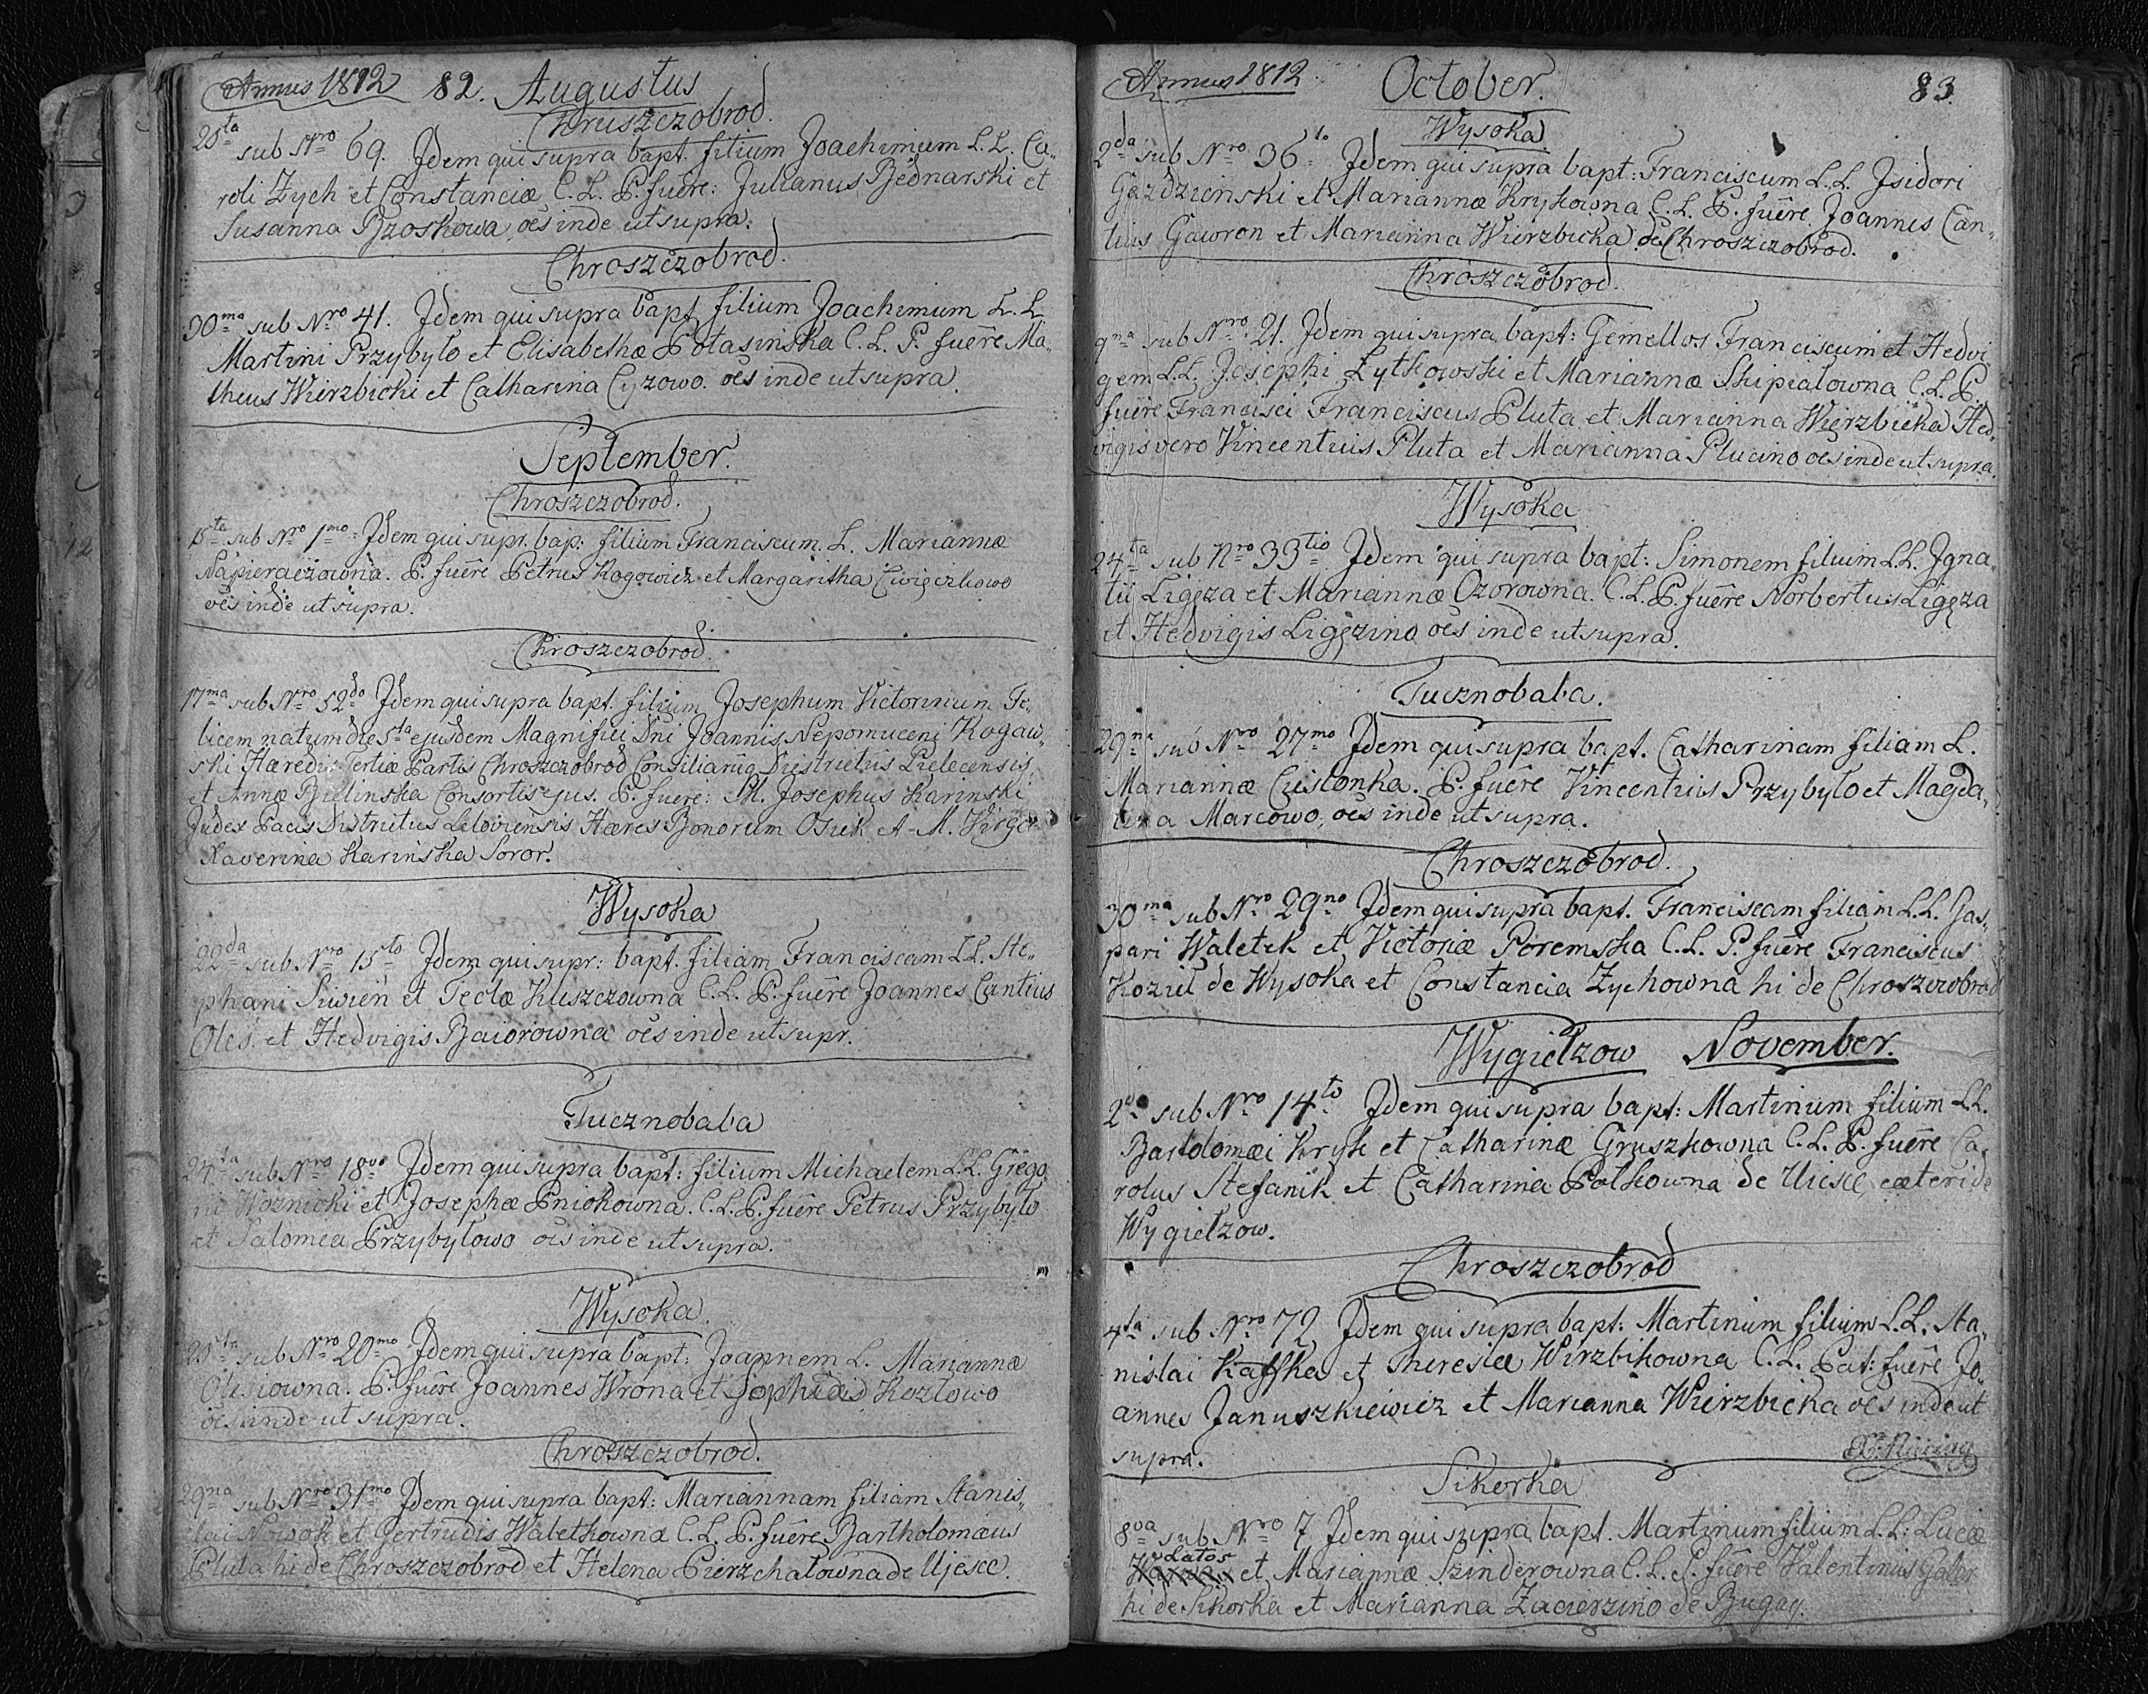 Annus 1812 82. Augustus
Chruszczobrod.
25ta sub Nro 69. Idem qui supra bapt. filium Joachimum L.L. Ca-
roli Zych et Constanciæ C. L. P. fuêre: Julianus Bednarski et
Susanna Brzoskowa, oēs inde ut supra.
Chroszczobrod.
30ma sub Nro 41. Idem qui supra bapt. filium Joachimum L. L.
Martini Przybyło et Elisabethæ Potasińska C. L. P. fuêre Ma-
theus Wierzbicki et Catharina Cyzowo. oēs inde ut supra.
September.
Chroszczobrod.
15ta sub Nro 1mo Idem qui supr. bap: filium Franciscum. L. Mariannæ
Napieraczowna. P. fuêre Petrus Rogowicz et Margaritha Cwięczkowo
oēs inde ut supra.
Chroszczobrod.
17ma sub Nro 52do Idem qui supra bapt. filium Josephum Victorinum Fe-
licem natum die 5ta ejusdem Magnifici Dni Joannis Nepomuceni Rogaw-
ski Hæredis Tertiæ Partis Chroszczobrod Consiliarii Districtus Pilecensis,
et Annæ Bielinska Consortis ejus. P. fuere: M. Josephus Karinski
Judex Pacis Districtus Leloviensis Hæres Bonorum Osiek et M. Virgo
Xaverina Karińska Soror.
Wysoka
22da sub Nro 15to Idem qui supr: bapt. filiam Franciscam L.L. Ste-
phani Siwień et Teclæ Kuszczowna C. L. P. fuêre Joannes Cantius
Oleś. et Hedvigis Baiorowna oēs inde ut supr.
Tucznobaba
24ta sub Nro 18vo Idem qui supra bapt: filium Michaelem L.L. Grego-
rii Woznicki et Josephæ Pniokowna. C. L. P. fuêre Petrus Przybyło
et Salomea Przybyłowo oēs inde ut supra.
Wysoka.
25ta sub Nro 20mo Idem qui supra bapt: Joannem L. Mariannæ
Olesiowna. P. fuêre Joannes Wrona et Sophia Kozłowo
oēs inde ut supra.
Chroszczobrod.
29na sub Nro 31mo Idem qui supra bapt: Mariannam filiam Stanis-
lai Nowok et Gertrudis Waletkowna C. L. P. fuêre Bartholomæus
Pluta hi de Chroszczobrod et Helena Pierzchałowna de Ujesce.
Annus 1812 October. 83.
Wysoka.
2da sub Nro 36to Idem qui supra bapt: Franciscum L.L. Isidori
Gazdzieński et Mariannæ Krykowna C. L. P. fuêre Joannes Can-
tius Gawron et Marianna Wierzbicka de Chroszczobrod.
Chroszczobrod.
9na sub Nro 21. Idem qui supra bapt: Gemellos Franciscum et Hedvi-
gem L.L. Josephi Łytkowski et Mariannæ Skipiałowna C. L. P.
fuêre Francisci Franciscus Pluta et Marianna Wierzbicka Hed-
vigis vero Vincentius Pluta et Marianna Plucino oēs inde ut supra.
Wysoka
24ta sub Nro 33tio Idem qui supra bapt: Simonem filium L.L. Igna-
tii Ligęza et Mariannæ Ozorowna. C. L. P. fuêre Norbertus Ligęza
et Hedvigis Ligęzino oēs inde ut supra.
Tucznobaba.
29na sub Nro 27mo Idem qui supra bapt. Catharinam filiam L.
Mariannæ Custonka. P. fuêre Vincentius Przybyło et Magda-
lena Marcowo, oēs inde ut supra.
Chroszczobrod.
30ma sub Nro 29no Idem qui supra bapt. Franciscam filiam L.L. Gas-
pari Waletek et Victoriæ Poremska C. L. P. fuêre Franciscus
Kozieł de Wysoka et Constancia Zychowna hi de Chroszczobrod
Wygiełzow November.
2da sub Nro 14to Idem qui supra bapt: Martinum filium L.L.
Bartolomæi Kryk et Catharinæ Gruszkowna C. L. P. fuêre Ca-
rolus Stefanik et Catharina Polkowna de Uiesce, cæteri de
Wygiełzow.
Chroszczobrod
4ta sub Nro 72 Idem qui supra bapt: Martinum filium L.L. Sta-
nislai Kaffka et Theresiæ Wirzbikowna C. L. Pat: fuêre Jo-
annes Januszkiewicz et Marianna Wierzbicka oēs inde ut
supra.
Sikorka
8va sub Nro 7 Idem qui supra bapt. Martinum filium L.L: Lucæ
Latos et Mariannæ Szinderowna C. L. P. fuêre Valentinus Gałor
hi de Sikorka et Marianna Zacierzino de Bugay.